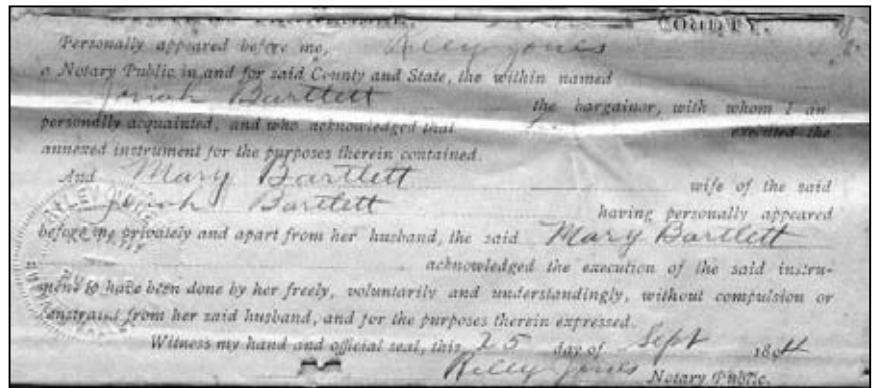 COUNTY.
Personally appeared before me, Riley Jones
a Notary Public in and for said County and State, the within named
Josiah Bartlett the bargainor, with whom I am
personally acquainted, and who acknowledged that he executed the
annexed instrument for the purposes therein contained.
And Mary Bartlett wife of the said
Josiah Bartlett having personally appeared
before me privately and apart from her husband, the said Mary Bartlett
acknowledged the execution of the said instru-
ment to have been done by her freely, voluntarily and understandingly, without compulsion or
constraint from her said husband, and for the purposes therein expressed.
Witness my hand and official seal, this 25 day of Sept 1894
Riley Jones Notary Public.